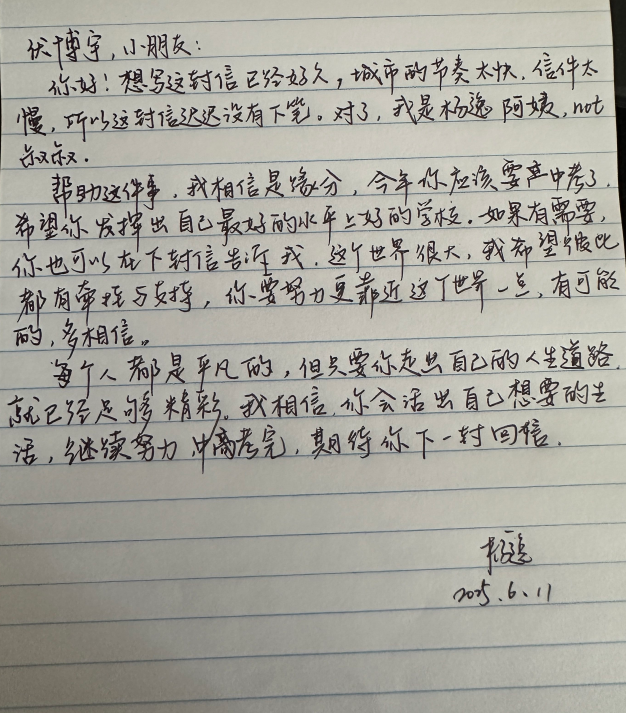 伏博宇,小朋友:
你好!想写这封信已经好久,城市的节奏太快,信件太
慢,所以这封信迟迟没有下笔。对了,我是杨逸阿姨,not
叔叔.
帮助这件事,我相信是缘分,今年你应该要高中考了.
希望你发挥出自己最好的水平上好的学校.如果有需要,
你也可以在下封信告诉我.这个世界很大,我希望彼此
都有牵挂与支持,你要努力更靠近这个世界一点,有可能
的,多相信。
每个人都是平凡的,但只要你走出自己的人生道路.
就已经足够精彩。我相信,你会活出自己想要的生
活,继续努力,中高考完,期待你下一封回信.
杨逸
2025.6.11